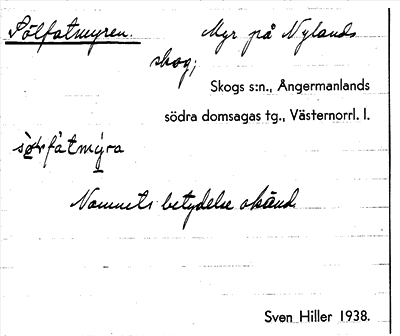 Sölfatmyren. Myr på Nylands
skog;
Skogs s:n., Ångermanlands
södra domsagas tg., Västernorrl. l.
Namnets betydelse okänd.
Sven Hiller 1938.